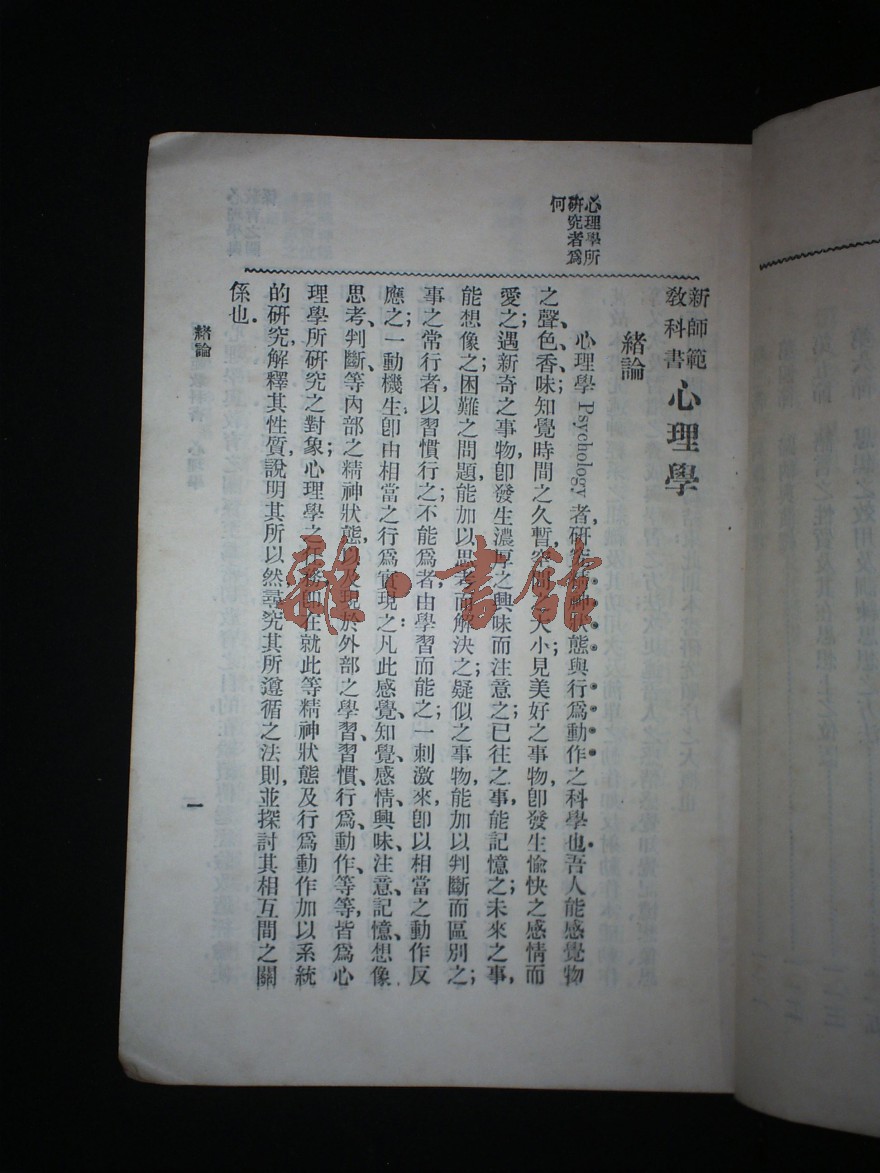 心理學所
研究者爲
何
新師範
教科書
心理學
緒論
心理學 Psychology 者，研究精神狀態與行爲動作之科學也．吾人能感覺物
之聲、色、香、味；知覺時間之久暫，空間之大小；見美好之事物，卽發生愉快之感情而
愛之；遇新奇之事物，卽發生濃厚之興味而注意之；已往之事，能記憶之；未來之事，
能想像之；困難之問題，能加以思考而解決之；疑似之事物，能加以判斷而區別之；
事之常行者，以習慣行之；不能爲者，由學習而能之；一刺激來，卽以相當之動作反
應之；一動機生，卽由相當之行爲實現：凡此感覺、知覺、感情、興味、注意、記憶、想像
思考、判斷、等內部之精神狀態，以及現於外部之學習、習慣、行爲、動作、等等，皆爲心
理學所研究之對象；心理學之任務，卽在就此等精神狀態及行爲動作加以系統
的研究，解釋其性質，說明其所以然，尋究其所遵循之法則，並探討其相互間之關
係也．
緒論
一
雜·書館